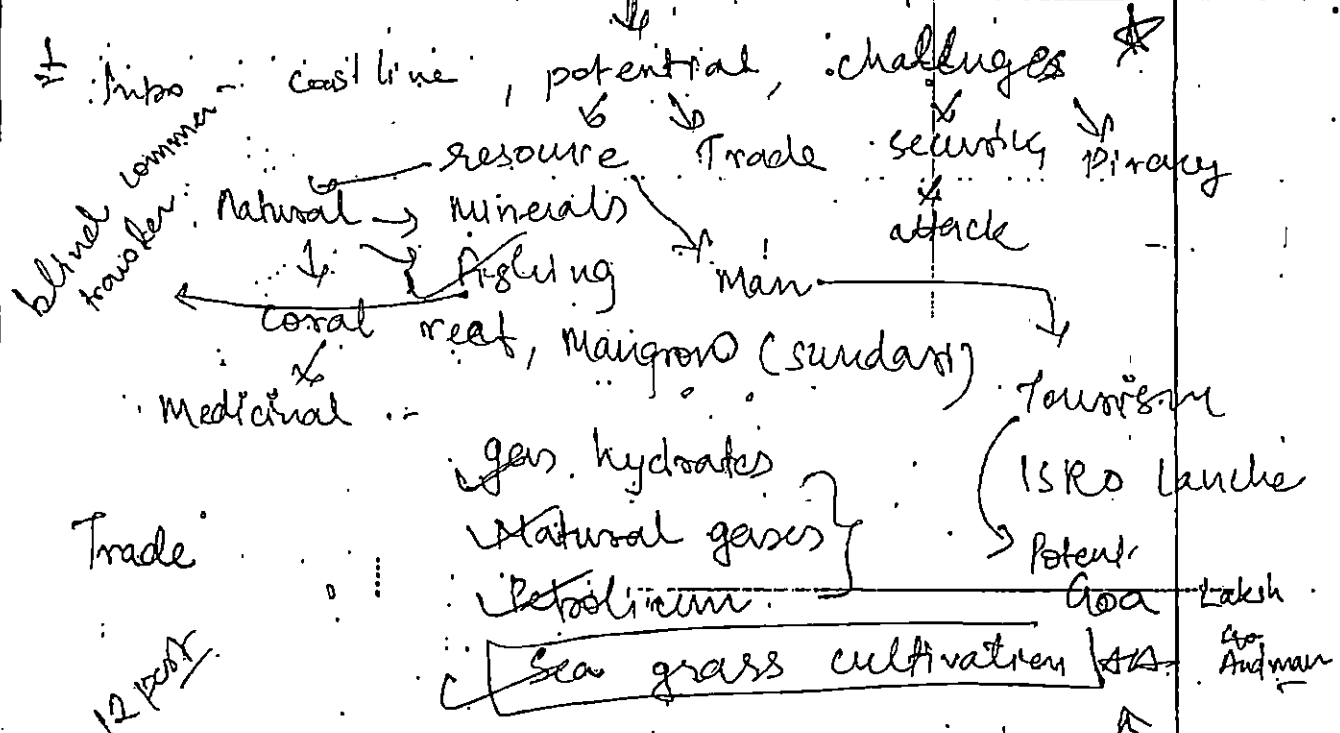 Intro - coastline, potential, challenges
resource Trade security Piracy
Natural → Minerals attack
fishing Man
coral reef, Mangrove (sundari)
Medicinal :- Tourism
gas hydrates ISRO Lanche
Trade Natural gases Potent.
Petrolieum Goa Laksh
Sea grass cultivation Andman
12 port
behind